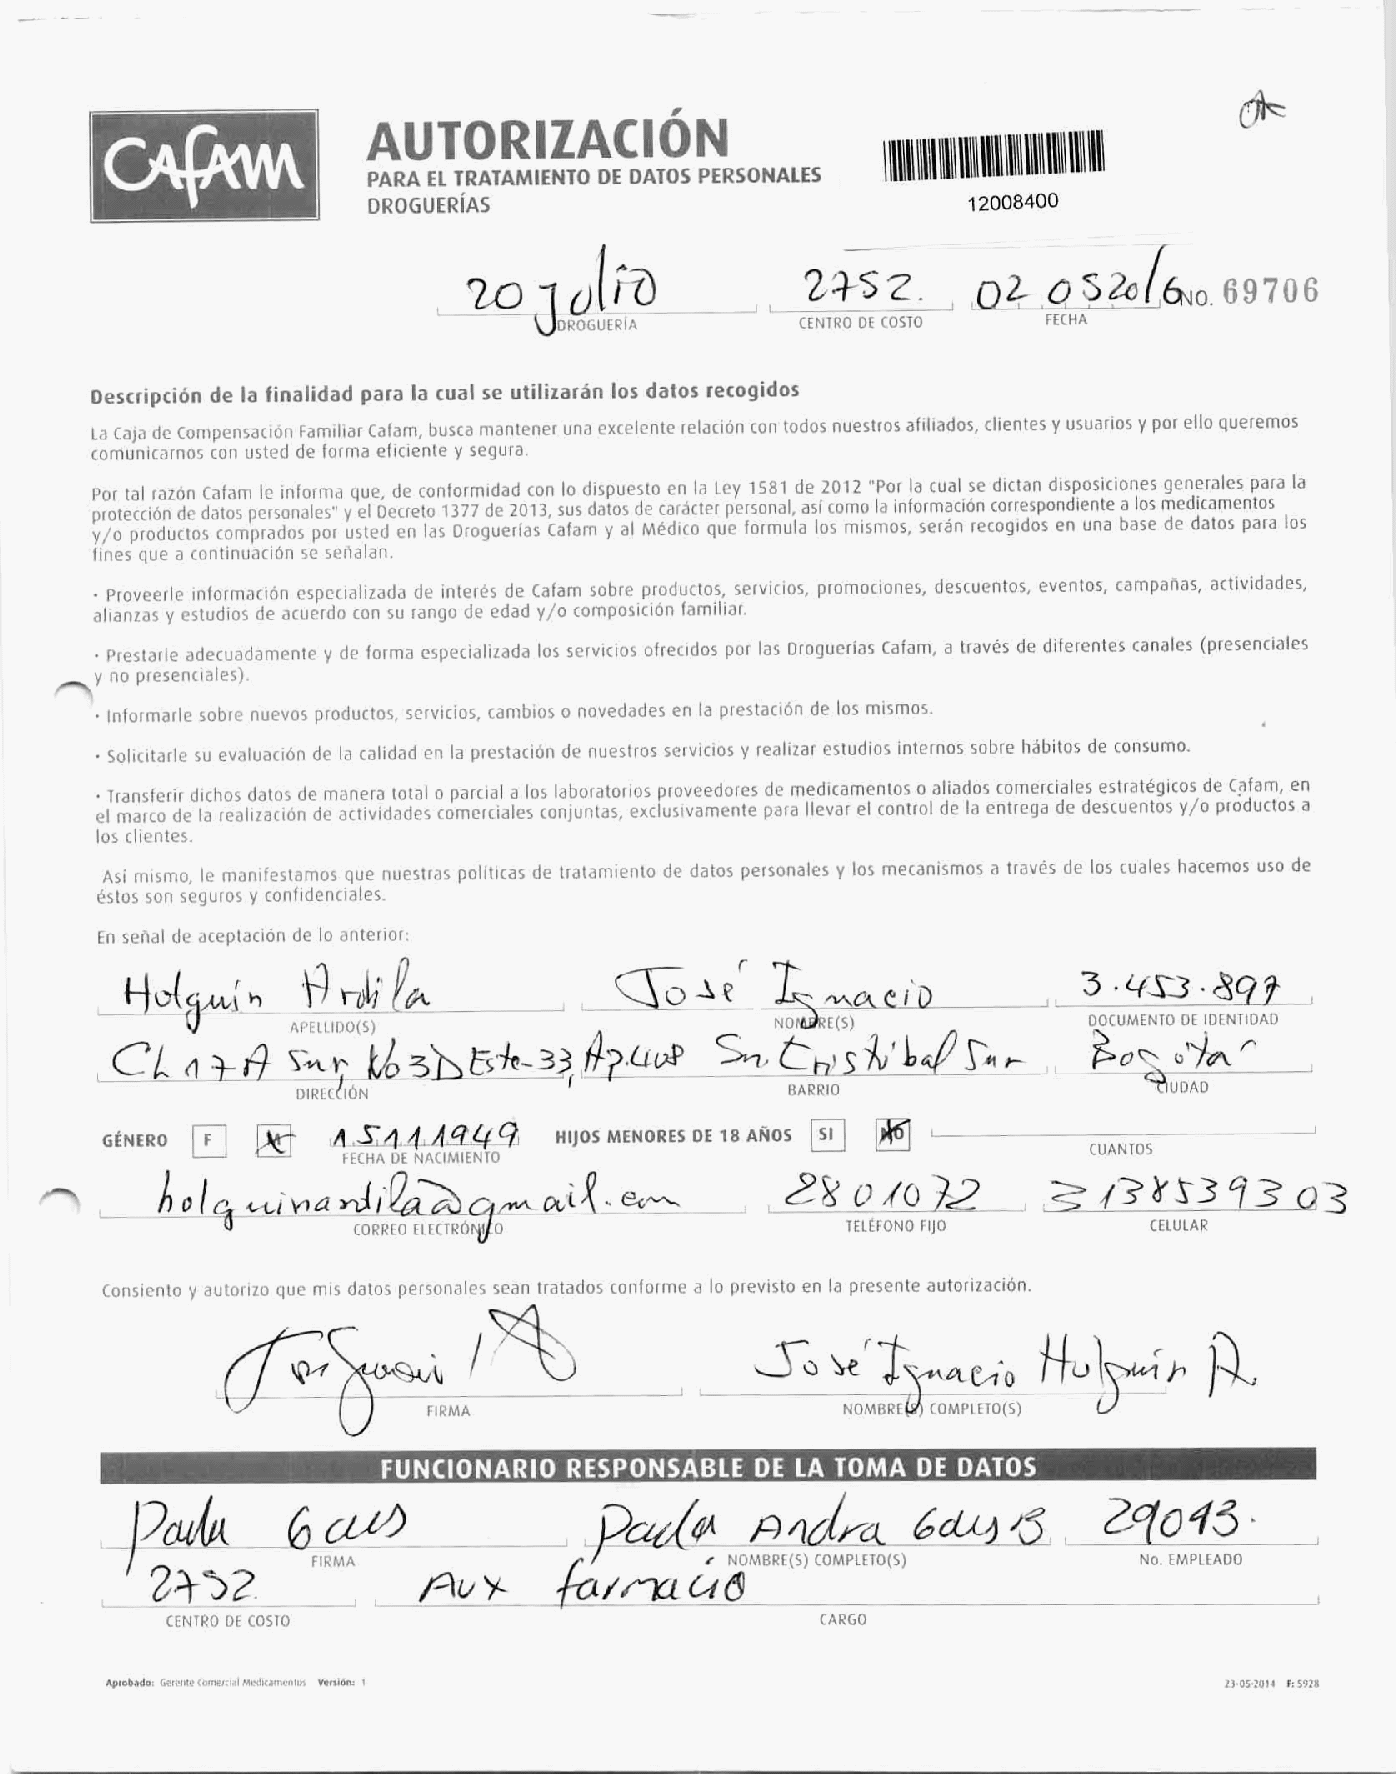 OK
CAFAM
AUTORIZACIÓN
PARA EL TRATAMIENTO DE DATOS PERSONALES
DROGUERÍAS
12008400
20 Julio 2752. 02 05 2016 No. 69706
DROGUERÍA CENTRO DE COSTO FECHA
Descripción de la finalidad para la cual se utilizarán los datos recogidos
La Caja de Compensación Familiar Cafam, busca mantener una excelente relación con todos nuestros afiliados, clientes y usuarios y por ello queremos
comunicarnos con usted de forma eficiente y segura.
Por tal razón Cafam le informa que, de conformidad con lo dispuesto en la Ley 1581 de 2012 "Por la cual se dictan disposiciones generales para la
protección de datos personales" y el Decreto 1377 de 2013, sus datos de carácter personal, así como la información correspondiente a los medicamentos
y/o productos comprados por usted en las Droguerías Cafam y al Médico que formula los mismos, serán recogidos en una base de datos para los
fines que a continuación se señalan.
· Proveerle información especializada de interés de Cafam sobre productos, servicios, promociones, descuentos, eventos, campañas, actividades,
alianzas y estudios de acuerdo con su rango de edad y/o composición familiar.
· Prestarle adecuadamente y de forma especializada los servicios ofrecidos por las Droguerías Cafam, a través de diferentes canales (presenciales
y no presenciales).
· Informarle sobre nuevos productos, servicios, cambios o novedades en la prestación de los mismos.
· Solicitarle su evaluación de la calidad en la prestación de nuestros servicios y realizar estudios internos sobre hábitos de consumo.
· Transferir dichos datos de manera total o parcial a los laboratorios proveedores de medicamentos o aliados comerciales estratégicos de Cafam, en
el marco de la realización de actividades comerciales conjuntas, exclusivamente para llevar el control de la entrega de descuentos y/o productos a
los clientes.
Así mismo, le manifestamos que nuestras políticas de tratamiento de datos personales y los mecanismos a través de los cuales hacemos uso de
éstos son seguros y confidenciales.
En señal de aceptación de lo anterior:
Holguín Ardila José Ignacio 3.453.897
APELLIDO(S) NOMBRE(S) DOCUMENTO DE IDENTIDAD
CL 17A Sur No 3D Este-33, Ap.408 Sn. Cristóbal Sur Bogotá
DIRECCIÓN BARRIO CIUDAD
GÉNERO F M 15111949 HIJOS MENORES DE 18 AÑOS SI NO
FECHA DE NACIMIENTO CUANTOS
holguinardila@gmail.com 2801072 3138539303
CORREO ELECTRÓNICO TELÉFONO FIJO CELULAR
Consiento y autorizo que mis datos personales sean tratados conforme a lo previsto en la presente autorización.
José Ignacio Holguín A.
FIRMA NOMBRE(S) COMPLETO(S)
FUNCIONARIO RESPONSABLE DE LA TOMA DE DATOS
Paola Paola Andra 29043.
FIRMA NOMBRE(S) COMPLETO(S) No. EMPLEADO
2752. Aux farmacia
CENTRO DE COSTO CARGO
Aprobado: Gerente Comercial Medicamentos Versión: 1 23-05-2014 F: 5928